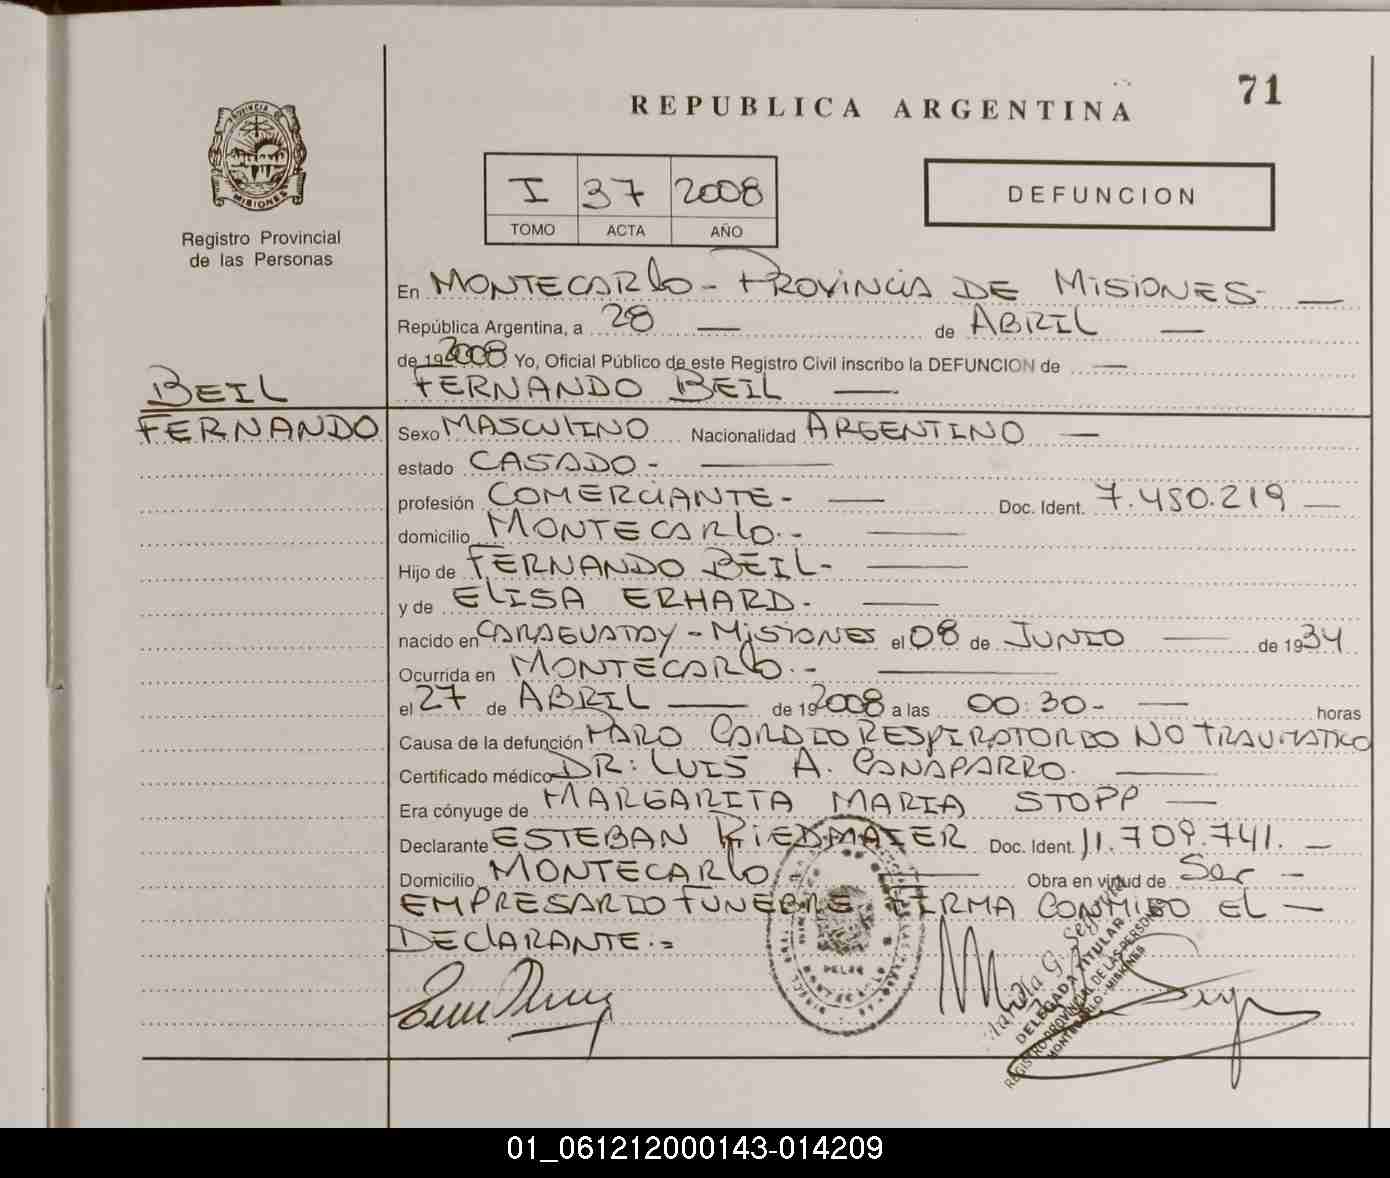 71
REPUBLICA ARGENTINA
PROVINCIA
MISIONES
Registro Provincial
de las Personas
I 37 2008
TOMO ACTA AÑO
DEFUNCION
En MONTECARLO - PROVINCIA DE MISIONES - —
República Argentina, a 28 — de ABRIL —
de 19 2008 Yo, Oficial Público de este Registro Civil inscribo la DEFUNCION de —
BEIL
FERNANDO
FERNANDO BEIL —
Sexo MASCULINO Nacionalidad ARGENTINO —
estado CASADO - —
profesión COMERCIANTE - — Doc. Ident. 7.480.219 —
domicilio MONTECARLO. - —
Hijo de FERNANDO BEIL - —
y de ELISA ERHARD - —
nacido en CARAGUATAY - MISIONES el 08 de JUNIO — de 1934
Ocurrida en MONTECARLO. - —
el 27 de ABRIL — de 19 2008 a las 00:30 - — horas
Causa de la defunción PARO CARDIO RESPIRATORIO NO TRAUMATICO
Certificado médico DR: LUIS A. CANAPARRO. —
Era cónyuge de MARGARITA MARIA STOPP —
Declarante ESTEBAN RIEDMAIER Doc. Ident. 11.709.741. —
Domicilio MONTECARLO — Obra en virtud de Ser -
EMPRESARIO FUNEBRE FIRMA CONMIGO EL —
DECLARANTE. =
María G. Segovia
DELEGADA TITULAR
REGISTRO PROVINCIAL DE LAS PERSONAS
MONTECARLO - MISIONES
01_061212000143-014209